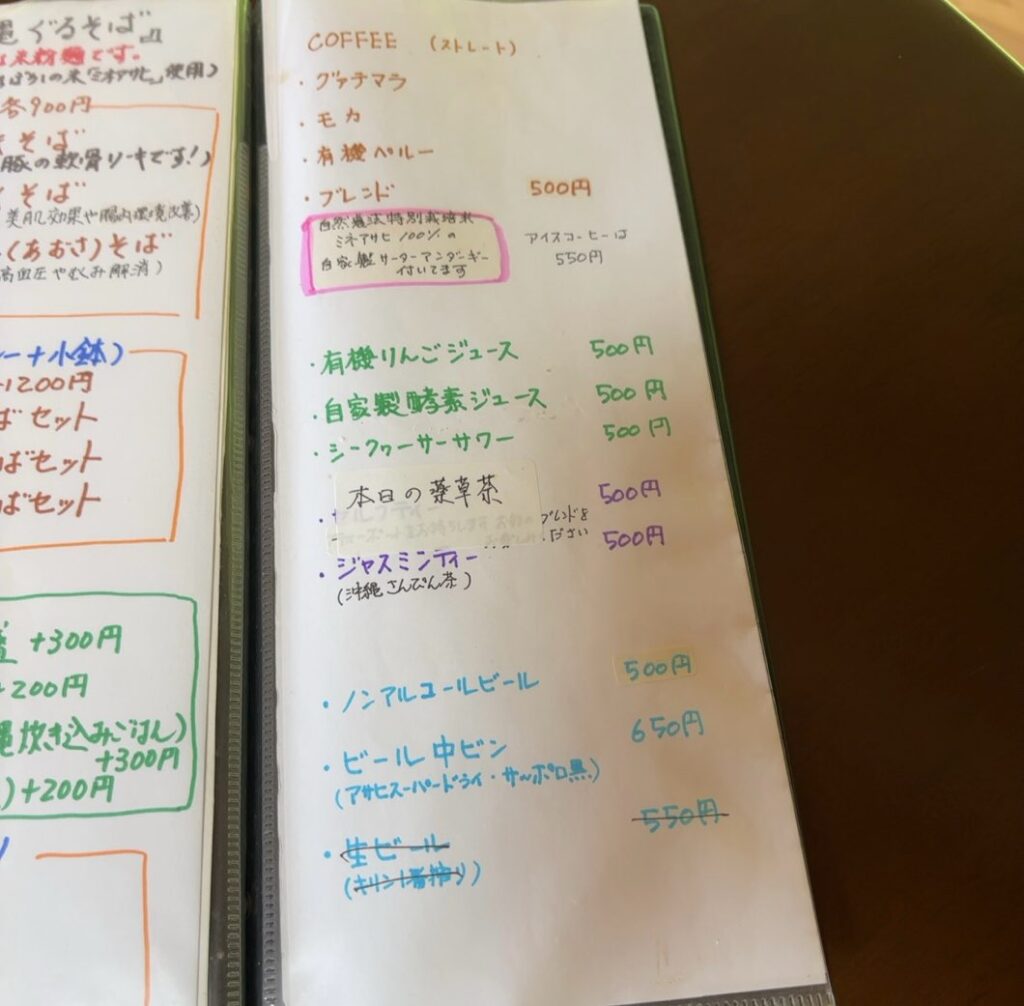 ぐるそば』
米粉麺です。
使用)
各900円
そば
豚の軟骨ソーキです!)
そば
美肌効果や腸内環境改善)
(あおさ)そば
高血圧やむくみ解消)
ー+小鉢)
1200円
ばセット
ばセット
ばセット
+300円
+200円
炊き込みごはん)
+300円
)+200円
COFFEE (ストレート)
・グァテマラ
・モカ
・有機ペルー
・ブレンド 500円
自然農法特別栽培米
ミネアサヒ 100%の
自家製サーターアンダーギー
付いてます
アイスコーヒーは
550円
・有機りんごジュース 500円
・自家製酵素ジュース 500円
・シークヮーサーサワー 500円
・本日の薬草茶 500円
ブレンドを
ださい
・ジャスミンティー 500円
(沖縄さんぴん茶)
・ノンアルコールビール 500円
・ビール中ビン 650円
(アサヒスーパードライ・サッポロ黒)
・生ビール 550円
(キリン一番搾り)